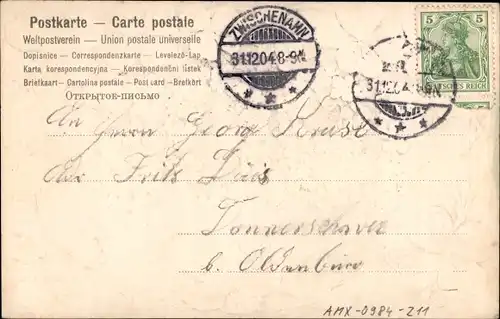 Postkarte - Carte postale
Weltpostverein - Union postale universelle
Dopisnice - Correspondenzkarte - Levelező-Lap
Karta korespondencyjna - Korespondenční lístek
Briefkaart - Cartolina postale - Post card - Brefkort
ОТКРЫТОЕ-ПИСЬМО
ZWISCHENAHN
31.12.04.8-9N.
5 5
DEUTSCHES REICH
An Herrn Georg Kruse
Fritz
b. Oldenburg
AMX-0984-Z11